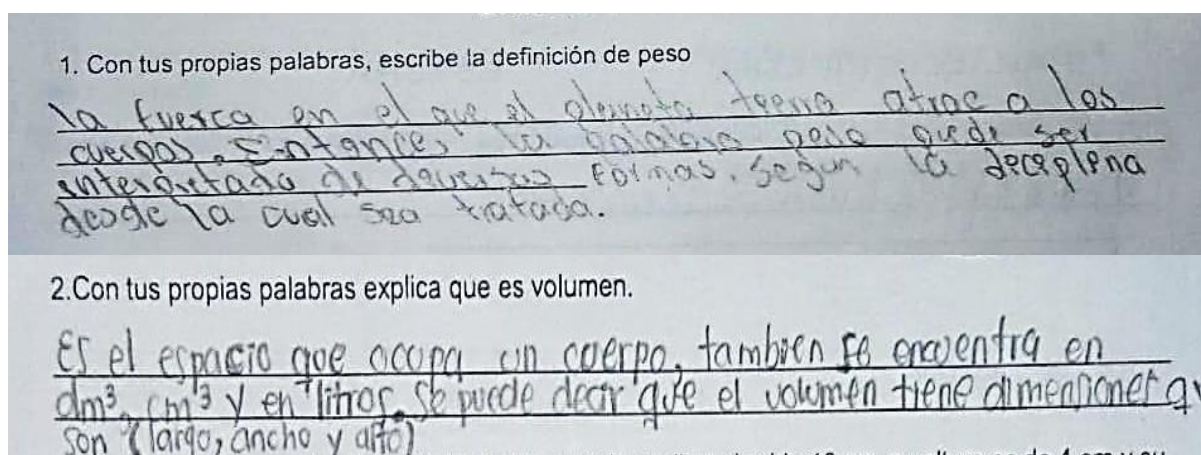 1. Con tus propias palabras, escribe la definición de peso
la fuerca en el que el planeta teerra atrae a los
cuerpos. Entonces la palabra peso puede ser
interpretada de deversas formas, segun la deceplena
desde la cual sea tratada.
2.Con tus propias palabras explica que es volumen.
Es el espacio que ocupa un cuerpo, tambien se encuentra en
dm³, cm³ y en litros. Se puede decir que el volumen tiene dimensiones q
son (largo, ancho y alto)